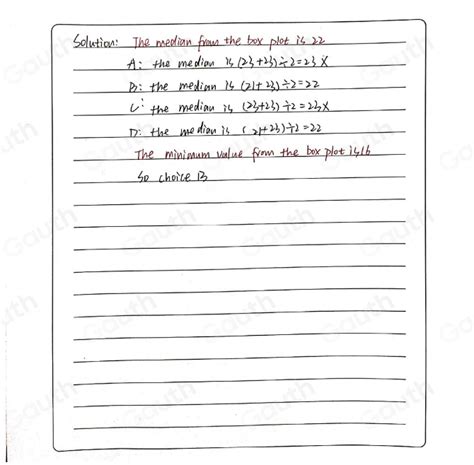 Solution: The median from the box plot is 22
A: the median is (23+23)÷2=23 X
B: the median is (21+23)÷2=22
C: the median is (23+23)÷2=23 X
D: the median is (21+23)÷2=22
The minimum value from the box plot is 16
So choice B